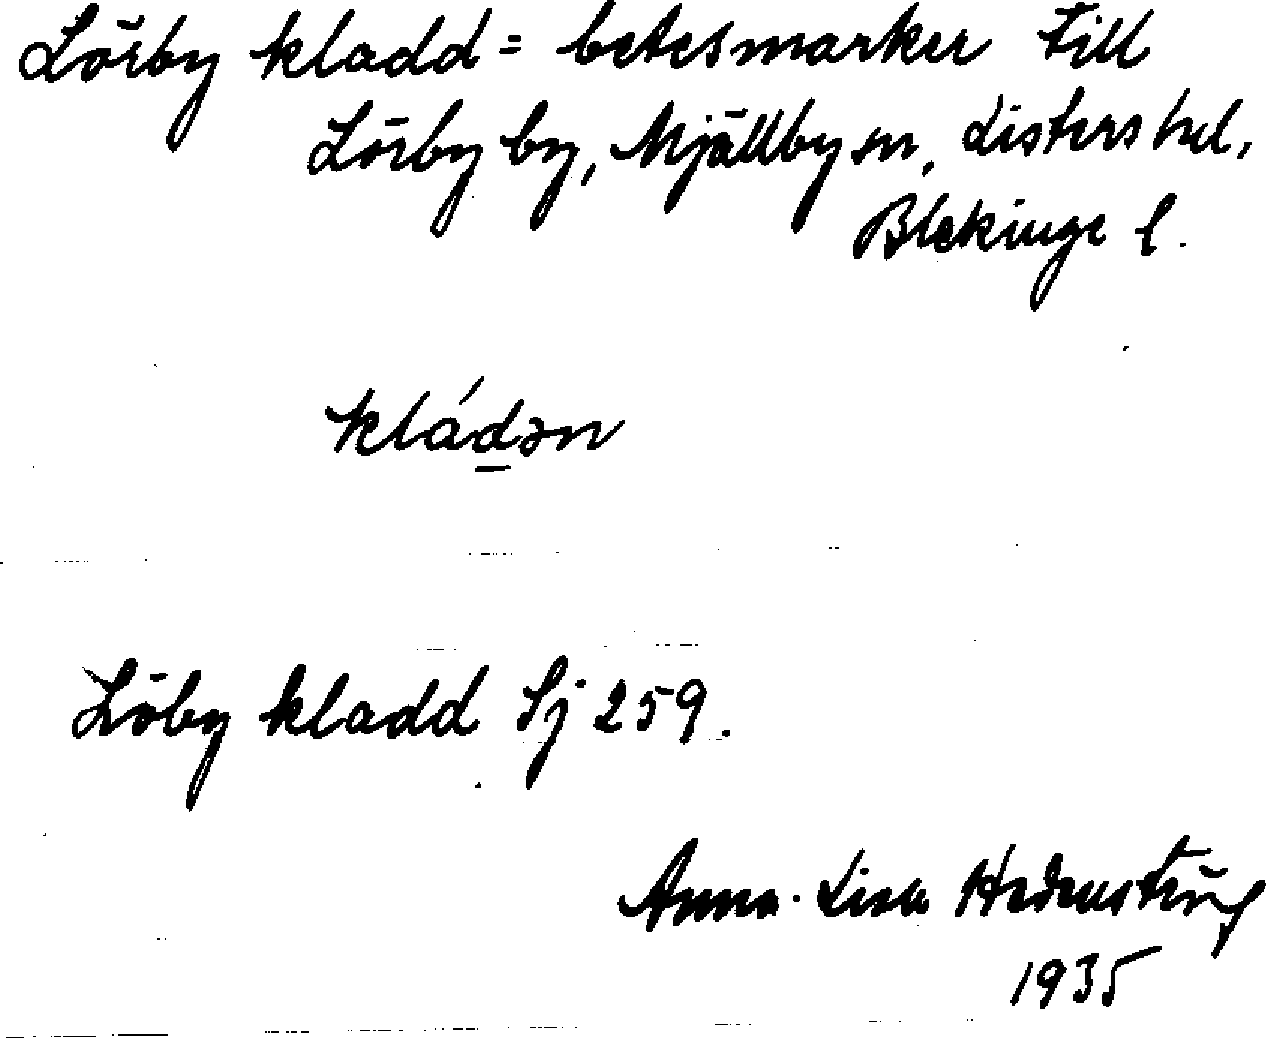 Lörby kladd = betesmarker till
Lörby by, Mjällby sn, Listers hd,
Blekinge l.
kládən
Löby kladd Sj 259.
Anna-Lisa
1935